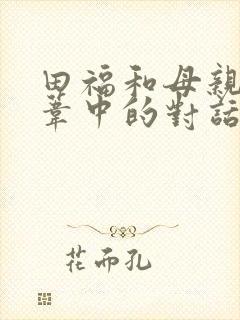 田福和母親
葦中的對話
花而孔